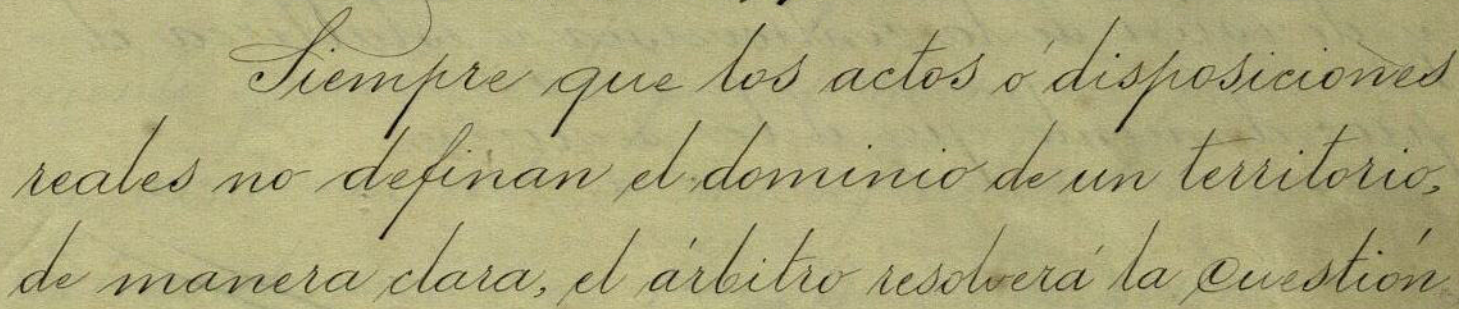 Siempre que los actos ó disposiciones
reales no definan el dominio de un territorio,
de manera clara, el árbitro resolverá la cuestión